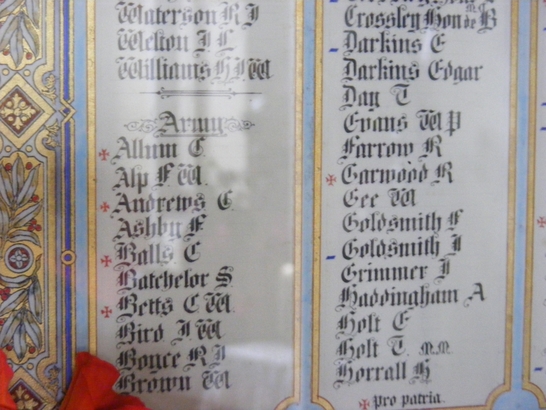 Waterson R J
Welton J L
Williams H J W
Army
Allum C
Alp F W.
Andrews C.
Ashby F
Balls C
Batchelor S.
Betts C W.
Bird J W
Boyce R J
Brown W
Crossley Hon ble B
Darkins E
Darkins Edgar
Day T
Evans W P
Farrow R
Garwood R
Gee W
Goldsmith F
Goldsmith J
Grimmer J
Haddingham A
Holt E
Holt T. M.M.
Horrall H
Pro patria.